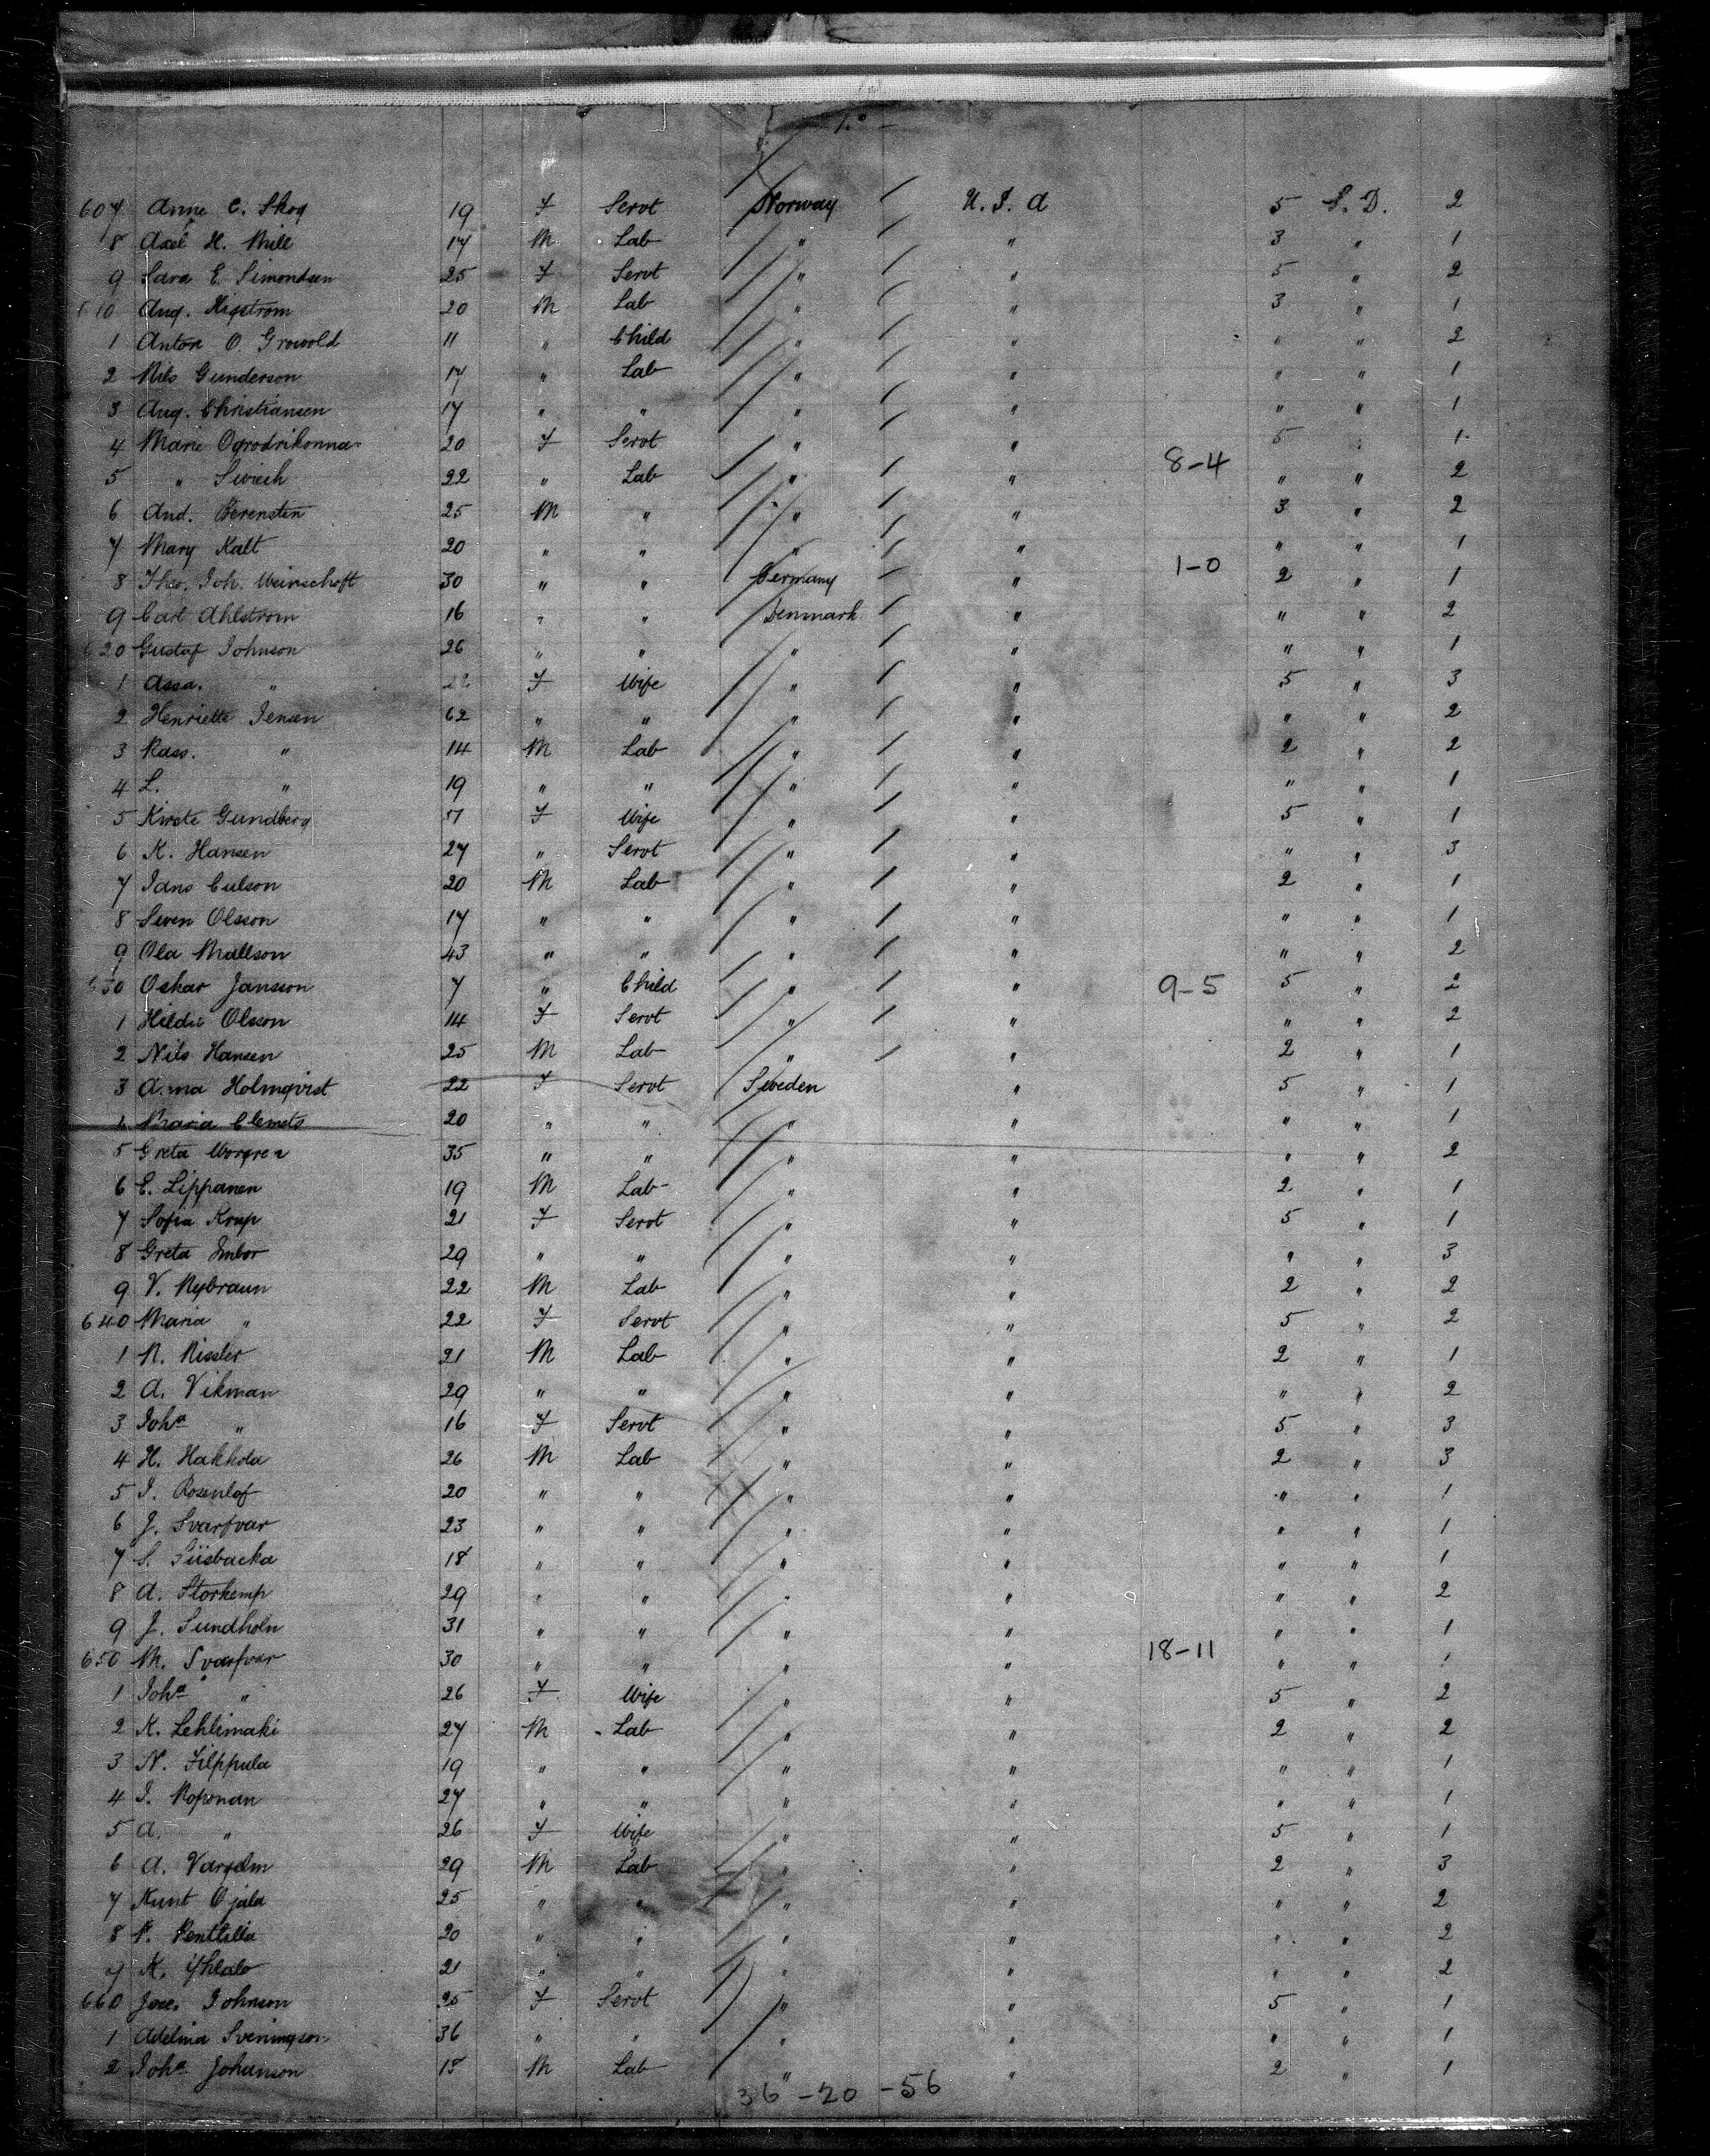 607 Anne C. Skog 19 F Servt Norway U.S.A 5 S.D. 2
8 Axel H. Mill 17 M Lab " " 3 " 1
9 Sara E. Simondsen 25 F Servt " " 5 " 2
610 Aug. Higstrom 20 M Lab " " 3 " 1
1 Anton O. Growold 11 " Child " " " " 2
2 Nils Gunderson 17 " Lab " " " " 1
3 Aug. Christiansen 17 " " " " " " 1
4 Marie Ogrodrikonna 20 F Servt " " 5 " 1
8-4
5 " Swiech 22 " Lab " " " " 2
6 And. Berensten 25 M " " " 3 " 2
7 Mary Kalt 20 " " " " " " 1
1-0
8 Theo. Joh. Weinschoft 30 " " Germany " 2 " 1
9 Carl Ahlstrom 16 " " Denmark " " " 2
620 Gustaf Johnson 26 " " " " " " 1
1 Assa. " 22 F Wife " " 5 " 3
2 Henriette Jensen 62 " " " " " " 2
3 Rass. " 14 M Lab " " 2 " 2
4 L. " 19 " " " " " " 1
5 Kirste Gundberg 57 F Wife " " 5 " 1
6 K. Hansen 27 " Servt " " " " 3
7 Jans Culson 20 M Lab " " 2 " 1
8 Swen Olsson 17 " " " " " " 1
9 Ola Mallson 43 " " " " " " 2
630 Oskar Jansson 7 " Child " " 9-5 5 " 2
1 Hilda Olsson 14 F Servt " " " " 2
2 Nils Hansen 25 M Lab " " 2 " 1
3 Anna Holmqvist 22 F Servt Sweden " 5 " 1
4 Maria Clemets 20 " " " " " " 1
5 Greta Worgren 35 " " " " " " 2
6 E. Lippanen 19 M Lab " " 2 " 1
7 Sofia Krap 21 F Servt " " 5 " 1
8 Greta Imbor 29 " " " " " " 3
9 V. Nybraun 22 M Lab " " 2 " 2
640 Maria " 22 F Servt " " 5 " 2
1 N. Nissler 21 M Lab " " 2 " 1
2 A. Vikman 29 " " " " " " 2
3 Joha " 16 F Servt " " 5 " 3
4 H. Hakkola 26 M Lab " " 2 " 3
5 J. Rosenlof 20 " " " " " " 1
6 J. Svarfvar 23 " " " " " " 1
7 S. Siisbacka 18 " " " " " " 1
8 A. Storkemp 29 " " " " " " 2
9 J. Sundholm 31 " " " " " " 1
18-11
650 M. Svarfvar 30 " " " " " " 1
1 Joha " 26 F Wife " " 5 " 2
2 K. Lehlimaki 27 M Lab " " 2 " 2
3 N. Filppula 19 " " " " " " 1
4 J. Roponan 27 " " " " " " 1
5 A. " 26 F Wife " " 5 " 1
6 A. Vargelm 29 M Lab " " 2 " 3
7 Kunt Ojala 25 " " " " " " 2
8 P. Penttilla 20 " " " " " " 2
9 K. 21 " " " " " " 2
660 Jose. Johnson 25 F Servt " " 5 " 1
1 Adelina Sveningson 36 " " " " " " 1
2 Joha Johanson 18 M Lab " " 2 " 1
36-20-56